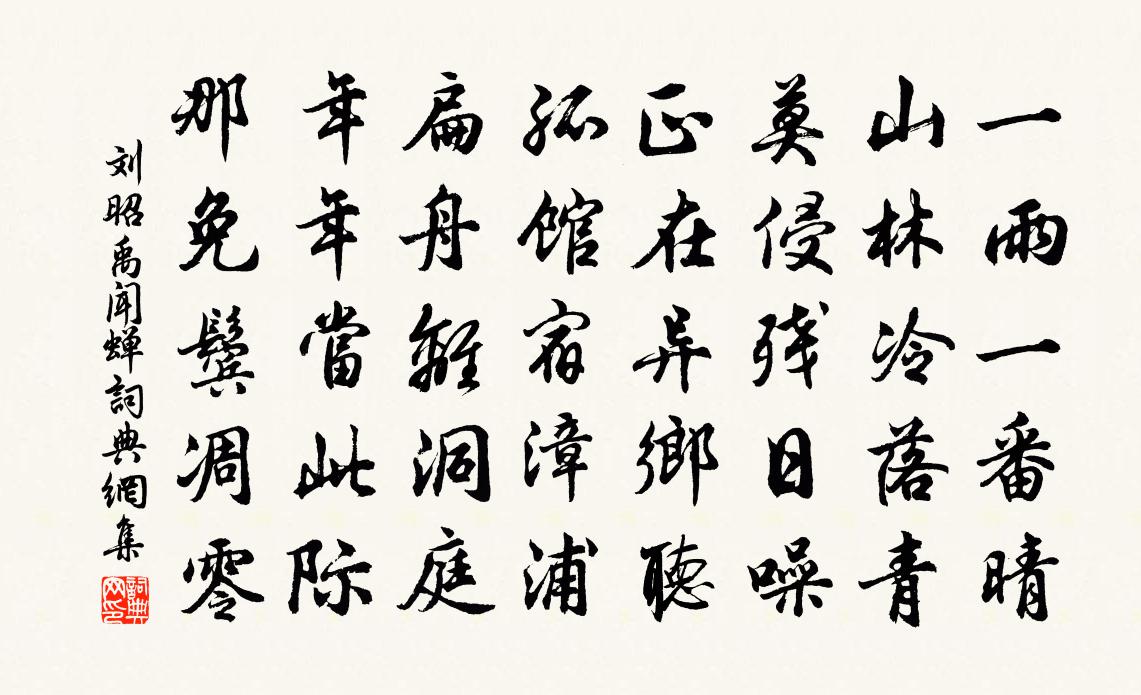 一雨一番晴
山林冷落青
莫侵残日噪
正在异鄉聽
孤馆宿漳浦
扁舟離洞庭
年年當此际
那免鬓凋零
刘昭禹闻蝉詞典網集
詞典网印